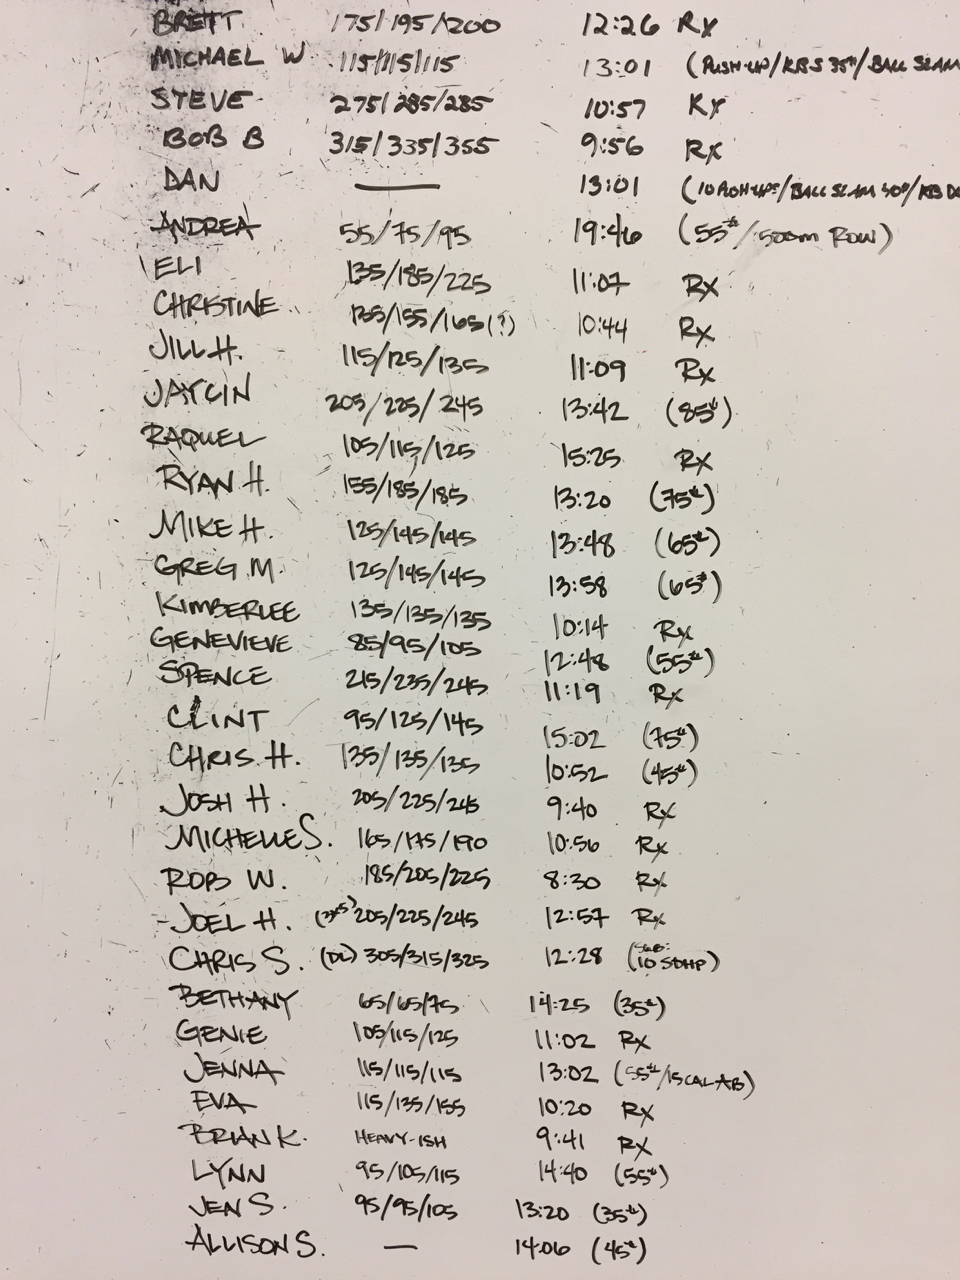 BRETT 175/195/200 12:26 Rx
MICHAEL W 115/115/115 13:01 (PUSH-UP/KBS 35#/BALL SLAM
STEVE 275/285/285 10:57 Rx
BOB B 315/335/355 9:56 Rx
DAN — 13:01 (10 PUSH-UPS/BALL SLAM 40#/KB
ANDREA 55/75/95 19:46 (55#/500m ROW)
ELI 135/185/225 11:07 Rx
CHRISTINE 135/155/165(?) 10:44 Rx
JILL H. 115/125/135 11:09 Rx
JAYCIN 205/225/245 13:42 (85#)
RAQUEL 105/115/125 15:25 Rx
RYAN H. 155/185/185 13:20 (75#)
MIKE H. 125/145/145 13:48 (65#)
GREG M. 125/145/145 13:58 (65#)
KIMBERLEE 135/135/135 10:14 Rx
GENEVIEVE 85/95/105 12:48 (55#)
SPENCE 215/235/245 11:19 Rx
CLINT 95/125/145 15:02 (75#)
CHRIS H. 135/135/135 10:52 (45#)
JOSH H. 205/225/245 9:40 Rx
MICHELLE S. 165/175/190 10:56 Rx
ROB W. 185/205/225 8:30 Rx
JOEL H. (3x5) 205/225/245 12:57 Rx
CHRIS S. (DL) 305/315/325 12:28 (SUB: 10 SDHP)
BETHANY 65/65/75 14:25 (35#)
GENIE 105/115/125 11:02 Rx
JENNA 115/115/115 13:02 (55#/15 CAL AB)
EVA 115/135/155 10:20 Rx
BRIAN K. HEAVY-ISH 9:41 Rx
LYNN 95/105/115 14:40 (55#)
JEN S. 95/95/105 13:20 (35#)
ALLISON S. — 14:06 (45#)